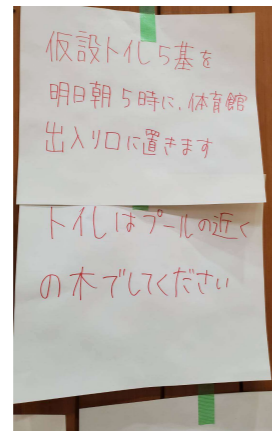 仮設トイレ5基を
明日朝5時に、体育館
出入り口に置きます
トイレはプールの近く
の木でしてください